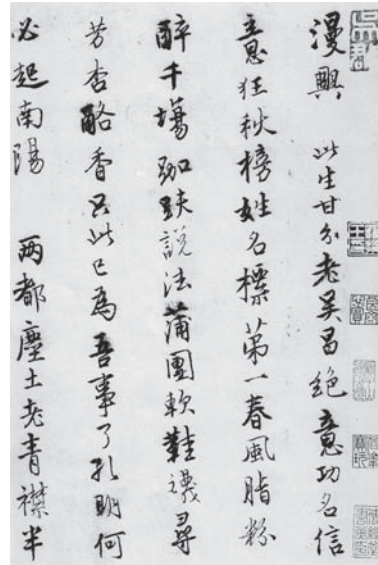 漫興 此生甘分老吳昌絕意功名信
意狂秋榜姓名標第一春風脂粉
醉千塲跏趺說法蒲團軟鞋襪尋
芳杏酪香只此已為吾事了孔明何
必起南陽 兩都塵土老青襟半